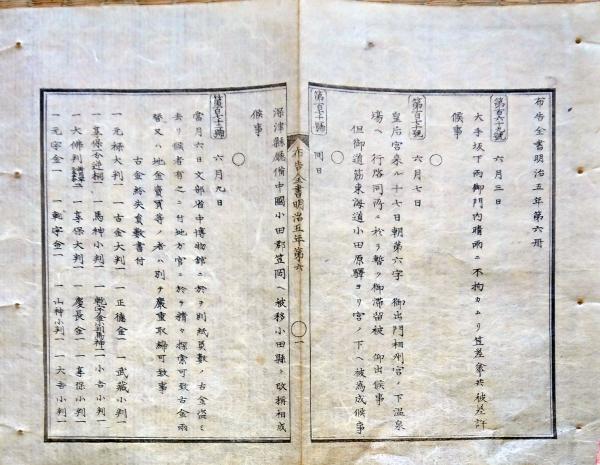 布告全書明治五年第六冊
第百六十九號 六月三日
大手坂下両御門内晴雨ニ不拘カムリ笠差傘共被差許
候事
第百七十號 六月七日
皇后宮来ル十七日朝第六字 御出門相州宮ノ下温泉
場ヘ 行啓同所ニ於テ暫ク御滞留被 仰出候事
但御道筋東海道小田原驛ヨリ宮ノ下ヘ被為成候事
同日
布告全書明治五年第六
一
深津縣廳備中國小田郡笠岡ヘ被移小田縣ト改稱相成
候事
六月九日
當月六日文部省中博物館ニ於テ別紙員數ノ古金盗ミ
去リ候者有之ニ付地方官ニ於テ精々探索可致古金両
替又ハ地金賣買等ノ者ハ別テ嚴重取締可致事
古金紛失員數書付
一元禄大判一 一古金大判一 一正徳金一 一武藏小判一
一享保 一馬神小判一 一乾字金 一小吉小判一
一大佛判 一享保大判一 一慶長金一 一享保小判一
一元字金一 一乾字金一 一山神小判一 一大吉小判一